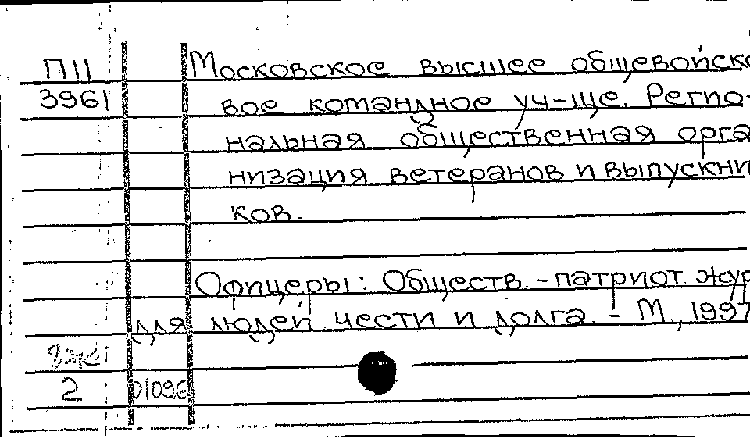 П11 Московское высшее общевойско
3961 вое командное уч-ще. Регио-
нальная общественная орга
низация ветеранов и выпускни
ков.
Офицеры: Обществ.-патриот. жур
для людей чести и долга. - М., 1997
2 01096